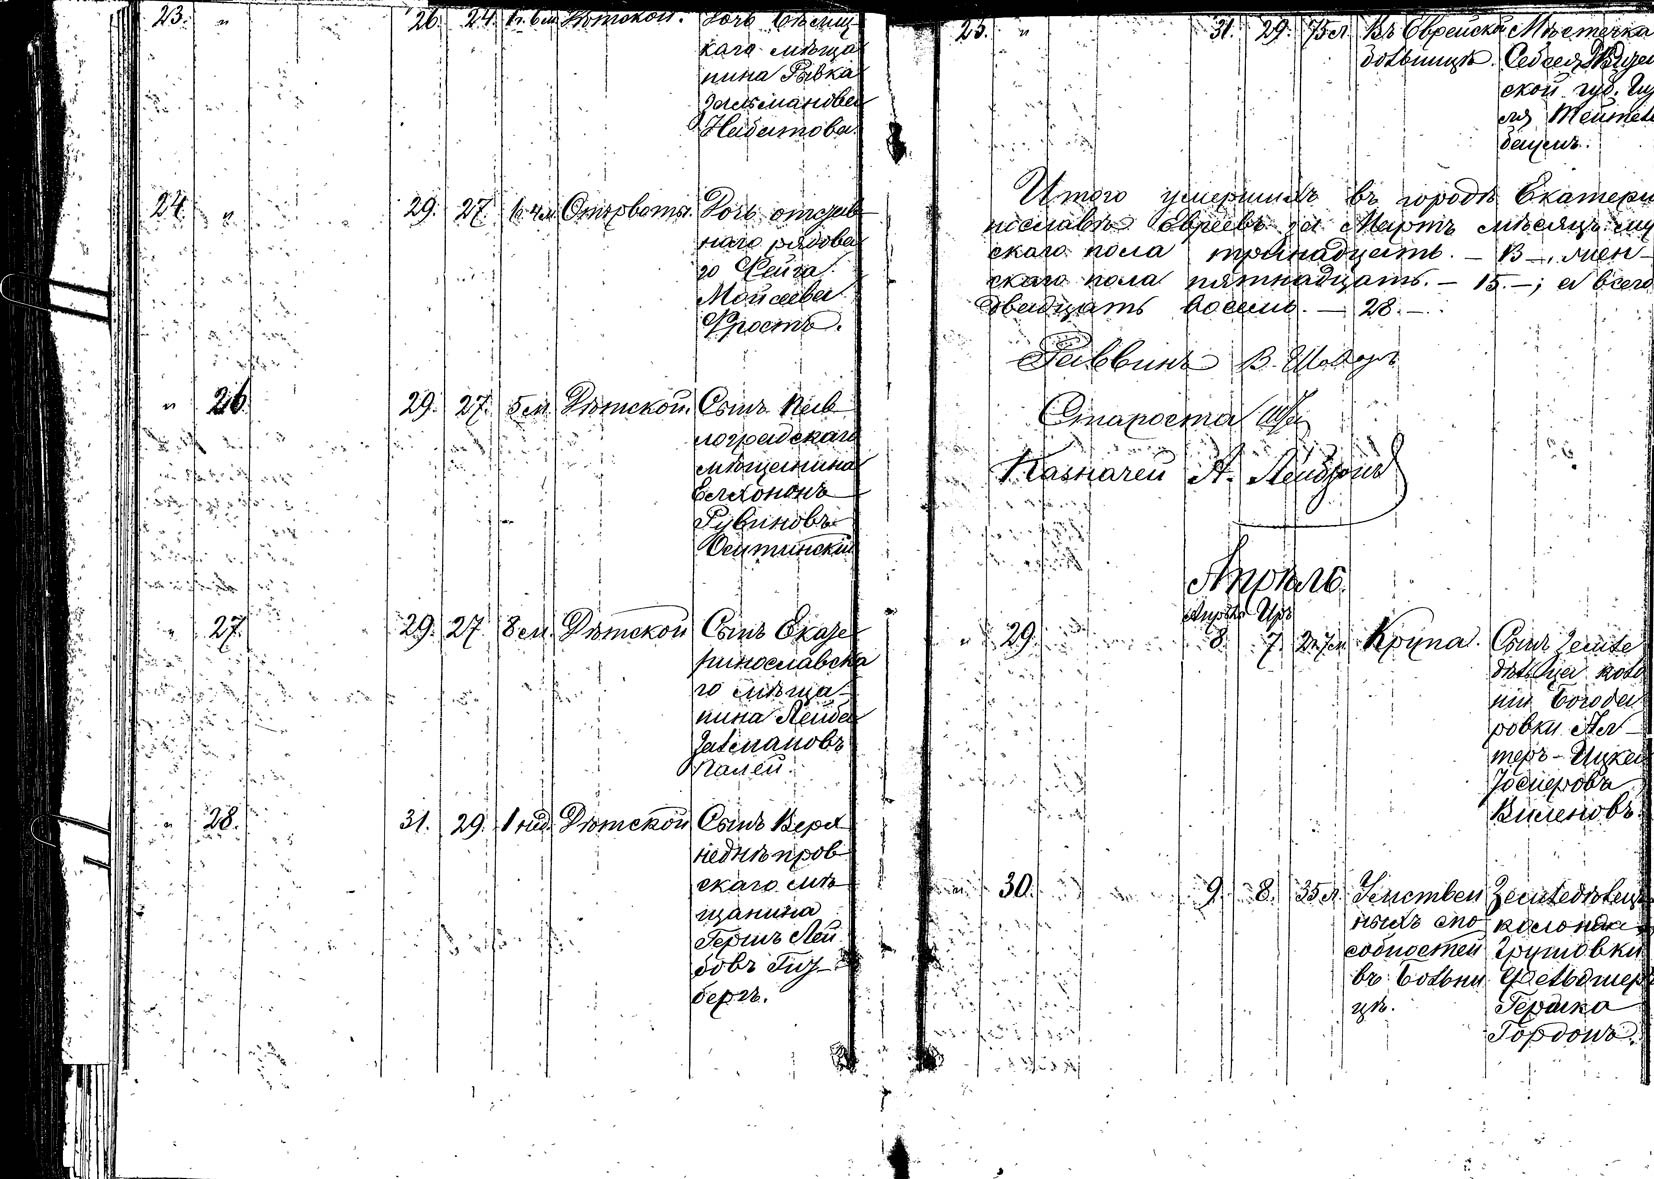 23. " 26. 24. 1г. 6 м. Дѣтской. Дочь
каго мѣща
нина Рывка
Залманова
Набатова.
24. " 29. 27. 1г. 4 м. Отъ рвоты. Дочь отстав
наго рядова
го Фейга
Мойсеева
Фростъ.
" 26. 29. 27. 5 м. Дѣтской. Сынъ Пав
лоградскаго
мѣщанина
Елхононъ
Рувиновъ
" 27. 29. 27 8 м. Дѣтской Сынъ Екате
ринославска
го мѣща
нина Лейба
Залмановъ
Палей.
" 28. 31. 29. 1 нед. Дѣтской Сынъ Верх
неднѣпров
скаго мѣ
щанина
Гершъ Лей
бовъ Гиз
бергъ.
25. " 31. 29. 75 л. Въ Еврейской Мѣстечка
больницѣ.
ской губ.
Тейтель
баумъ.
Итого умершихъ въ городѣ Екатери
нославѣ Евреевъ за Мартъ мѣсяцъ му
скаго пола тринадцать. – 13 –, жен
скаго пола пятнадцать. – 15. –; а всего
двадцать восемь. – 28. –.
Раввинъ В. Шавадзъ
Староста
Казначей А. Лейбзонъ
Апрѣль.
Апрѣля Иръ
" 29. 8. 7. 2г. 7м. Крупа. Сынъ Землe
дѣльца коло
ніи Богода
ровки Ал
теръ-Ицка
Іосиповъ
Виленовъ.
" 30. 9. 8. 35 л. Умствен Земледѣлецъ
ныхъ спо колоніи
собностей Грушовки
въ Больни Фельдшеръ
цѣ. Гершка
Гордонъ.